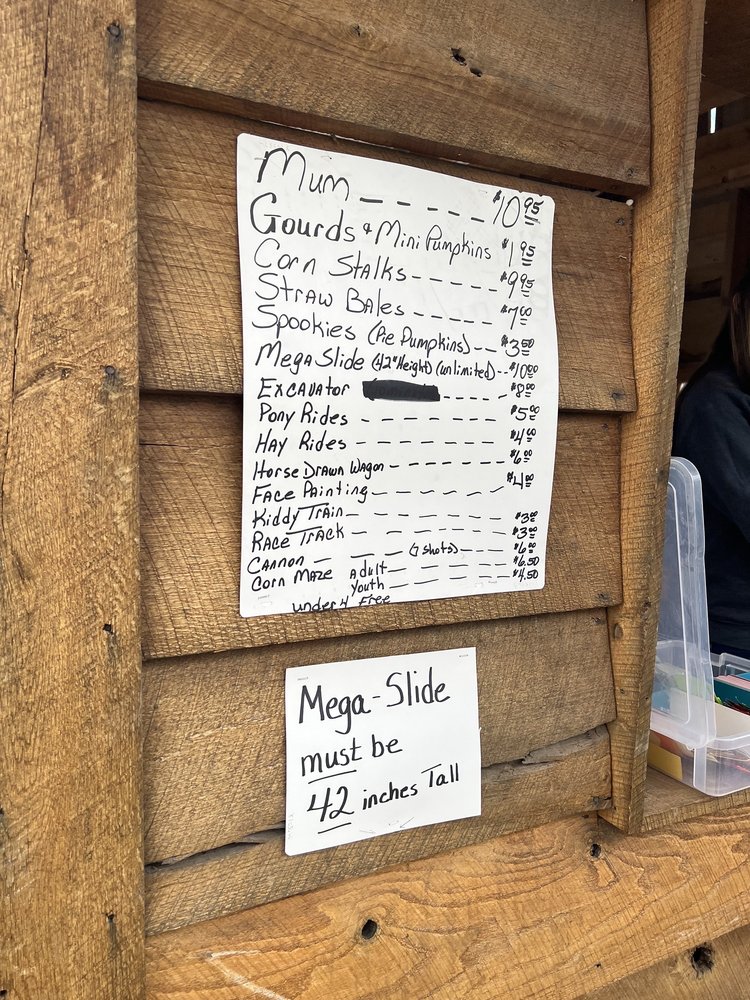 Mum ------ $10.95
Gourds & Mini Pumpkins $1.95
Corn Stalks ------ $9.95
Straw Bales ------ $7.00
Spookies (Pie Pumpkins)--- $3.50
Mega Slide (42" Height) (unlimited)-- $10.00
Excavator ---- $8.00
Pony Rides ------ $5.00
Hay Rides ------ $4.00
Horse Drawn Wagon ------ $6.00
Face Painting ------ $4.00
Kiddy Train ------ $3.00
Race Track ------ $3.00
Cannon --- (7 Shots)--- $6.00
Corn Maze Adult ------ $6.50
Youth ------ $4.50
under 4 Free
Mega-Slide
must be
42 inches Tall